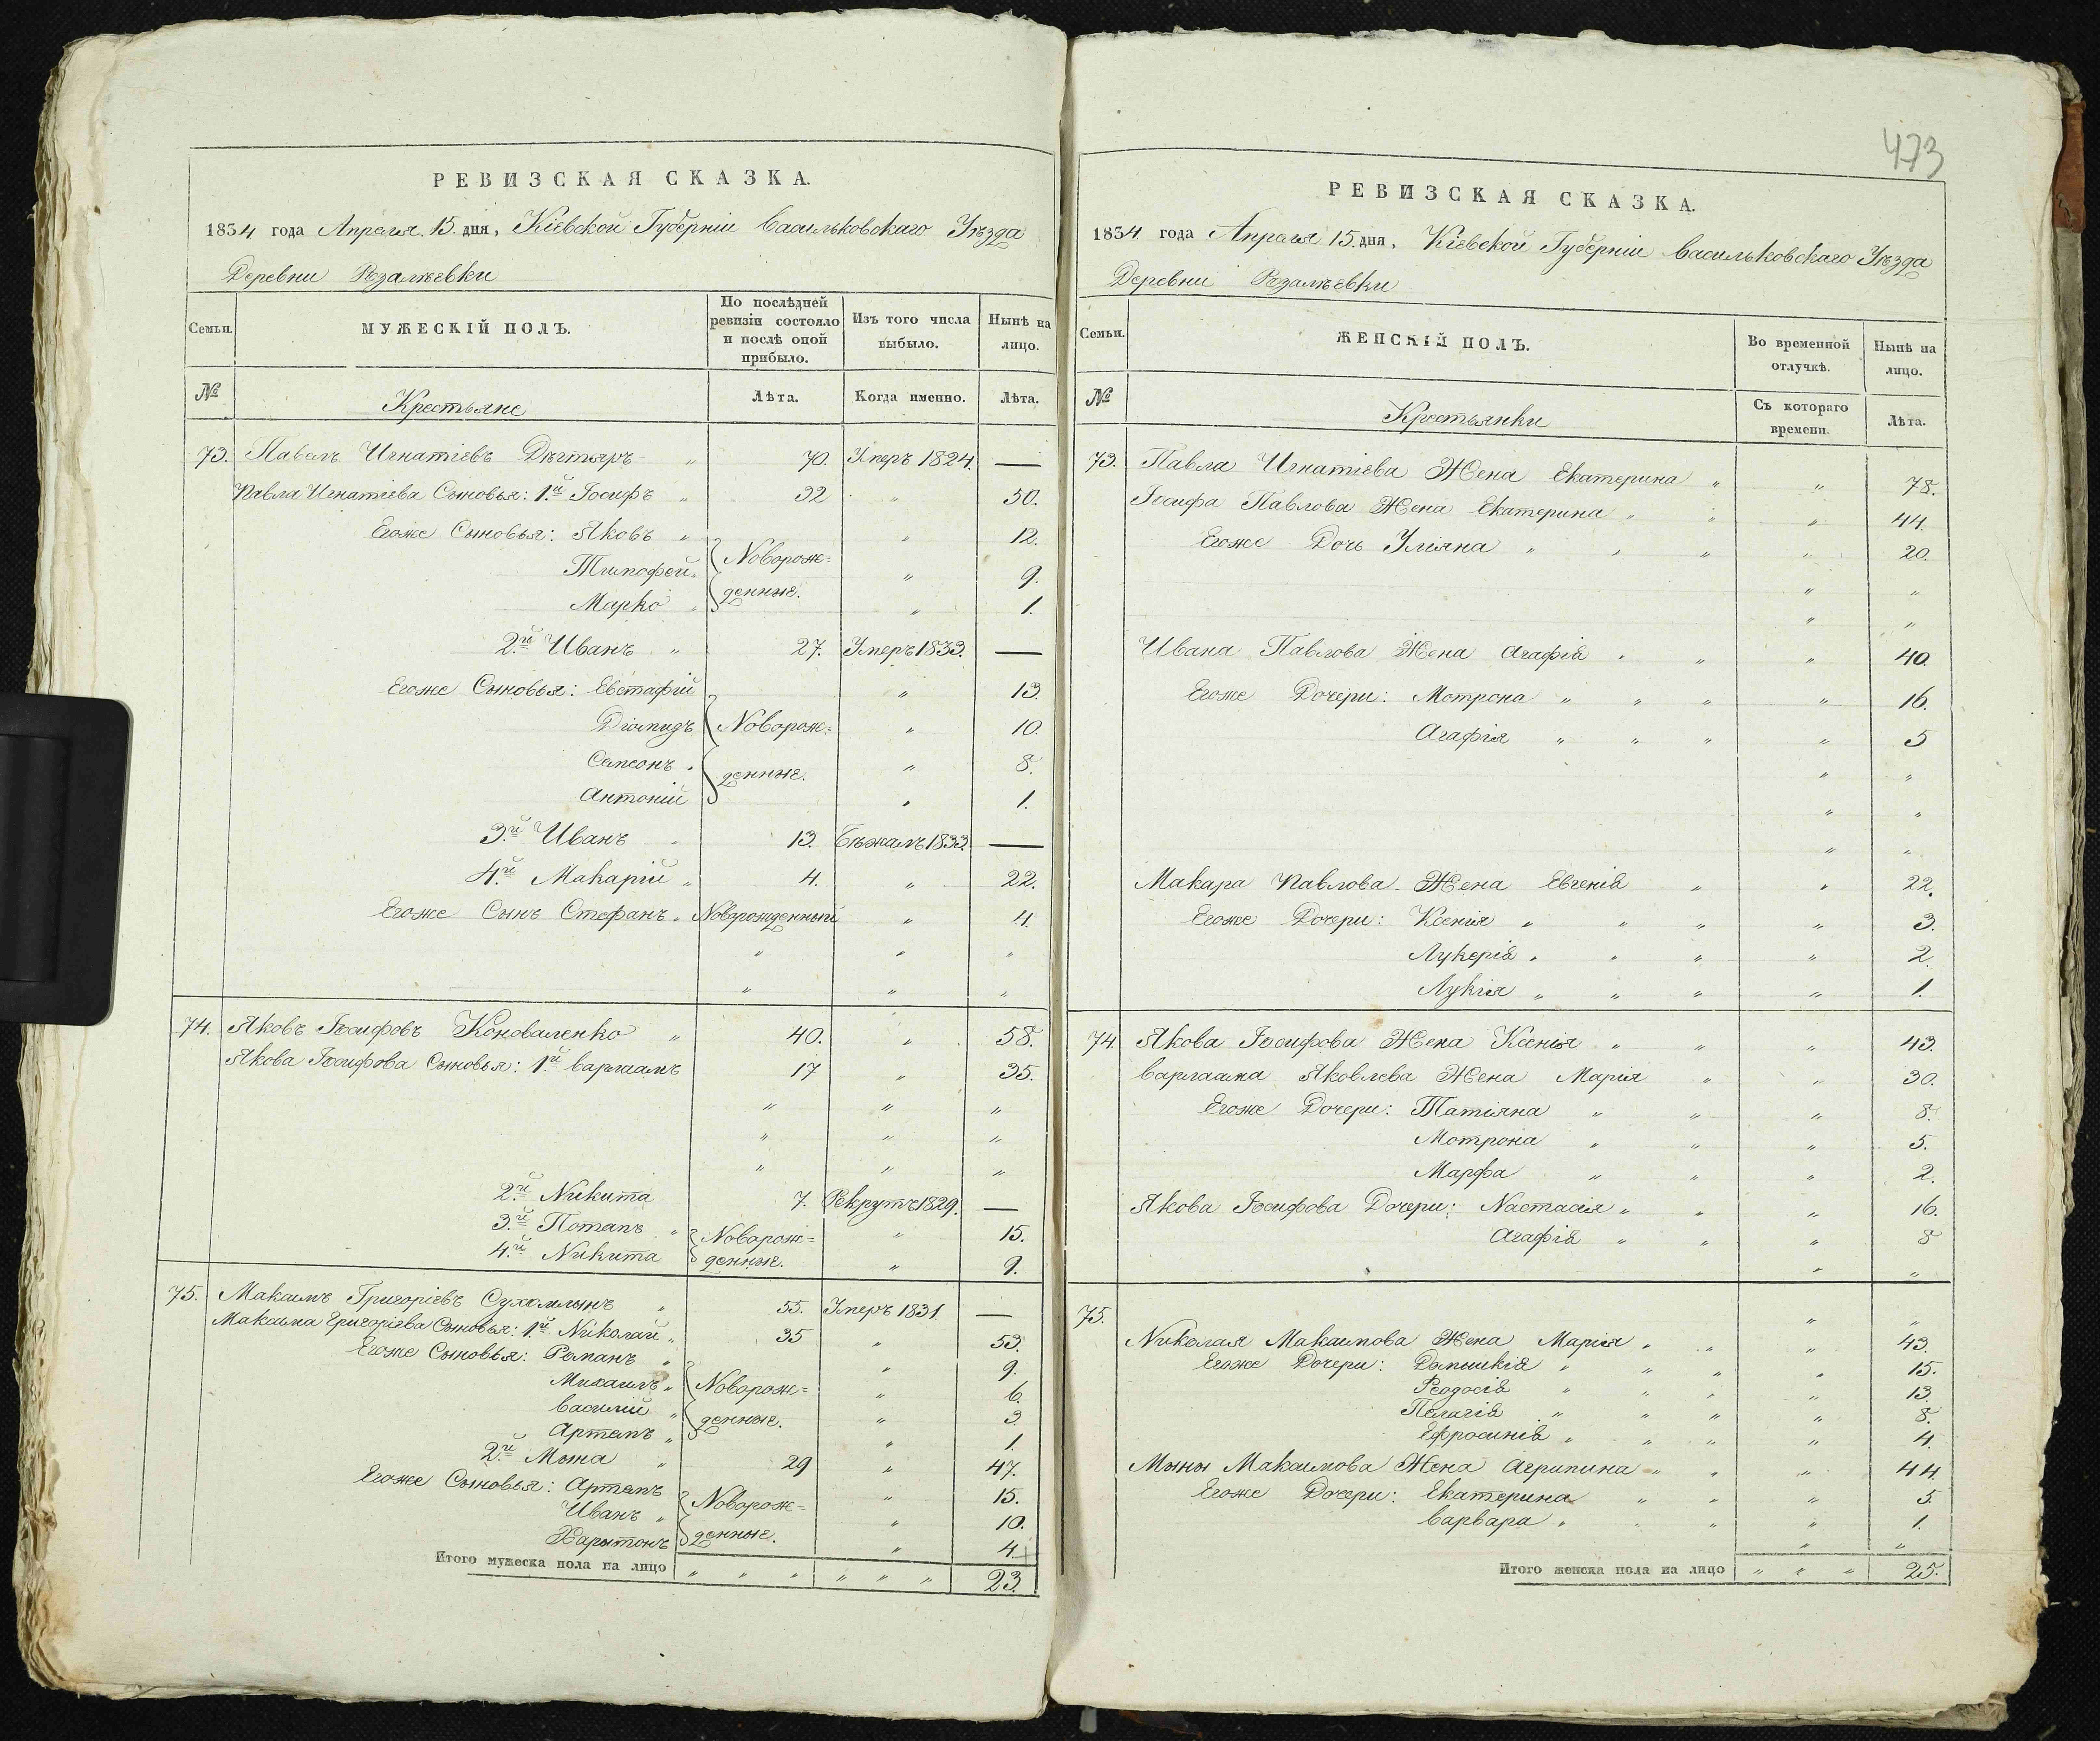 473
РЕВИЗСКАЯ СКАЗКА.
1834 года Апреля 15. дня, Кіевской Губерніи Васильковскаго Уѣзда
Деревни Розалѣевки
Семьи.
МУЖЕСКІЙ ПОЛЪ.
По послѣдней ревизіи состояло и послѣ оной прибыло.
Изъ того числа выбыло.
Нынѣ на лицо.
№
Крестьяне
Лѣта.
Когда именно.
Лѣта.
73. Павелъ Игнатіевъ Дѣгтяръ " 70. Умеръ 1824. —
Павла Игнатіева Сыновья: 1.й Іосифъ " 32 " 50.
Егоже Сыновья: Яковъ " " 12.
Тимофей " { Новорож= " 9.
Марко " денные. " 1.
2.й Иванъ " 27. Умеръ 1833. —
Егоже Сыновья: Евстафій " 13.
Діомидъ { Новорож= " 10.
Самсонъ " денные. " 8.
Антоній " 1.
3.й Иванъ " 13. Бѣжалъ 1833. —
4.й Макарій " 4. " 22.
Егоже Сынъ Стефанъ " Новорожденный " 4.
" " "
" " "
74. Яковъ Іосифовъ Коноваленко " 40. " 58.
Якова Іосифова Сыновья: 1.й Варлаамъ 17 " 35.
" " "
" " "
" " "
2.й Никита 7. Рекрутъ 1829. —
3.й Потапъ " { Новорож= " 15.
4.й Никита денные. " 9.
75. Максимъ Григоріевъ Сухомлынъ " 55. Умеръ 1831. —
Максима Григоріева Сыновья: 1.й Николай " 35 " 53.
Егоже Сыновья: Романъ " " 9.
Михаилъ " { Новорож= " 6.
Василій " денные. " 3.
Артемъ " " 1.
2.й Мына " 29 " 47.
Егоже Сыновья: Артемъ " 15.
Иванъ " { Новорож= " 10.
Харытонъ денные. " 4.
Итого мужеска пола на лицо " " " " " " 23.
РЕВИЗСКАЯ СКАЗКА.
1834 года Апреля 15. дня, Кіевской Губерніи Васильковскаго Уѣзда
Деревни Розалѣевки
Семьи.
ЖЕНСКІЙ ПОЛЪ.
Во временной отлучкѣ.
Нынѣ на лицо.
№
Крестьянки
Съ котораго времени.
Лѣта.
73. Павла Игнатіева Жена Екатерина " " 78.
Іосифа Павлова Жена Екатерина " " " 44.
Егоже Дочь Уліяна " " " " 20.
" "
" "
Ивана Павлова Жена Агафія " " " 40.
Егоже Дочери: Мотрона " " " " 16.
Агафія " " " " 5
" "
" "
" "
Макара Павлова Жена Евгенія " " 22.
Егоже Дочери: Ксенія " " " " 3.
Лукерія " " " " 2.
Лукія " " " " 1.
74. Якова Іосифова Жена Ксенія " " " 43.
Варлаама Яковлева Жена Марія " " 30.
Егоже Дочери: Татіяна " " " 8.
Мотрона " " " 5.
Марфа " " " 2.
Якова Іосифова Дочери: Настасія " " " 16.
Агафія " " " 8
" "
75. " "
Николая Максимова Жена Марія " " " 43.
Егоже Дочери: Домникія " " " " 15.
Феодосія " " " " 13.
Пелагія " " " " 8.
Ефросинія " " " " 4.
Мыны Максимова Жена Агрипина " " " 44.
Егоже Дочери: Екатерина " " " 5.
Варвара " " " " 1.
" "
Итого женска пола на лицо " " " 25.